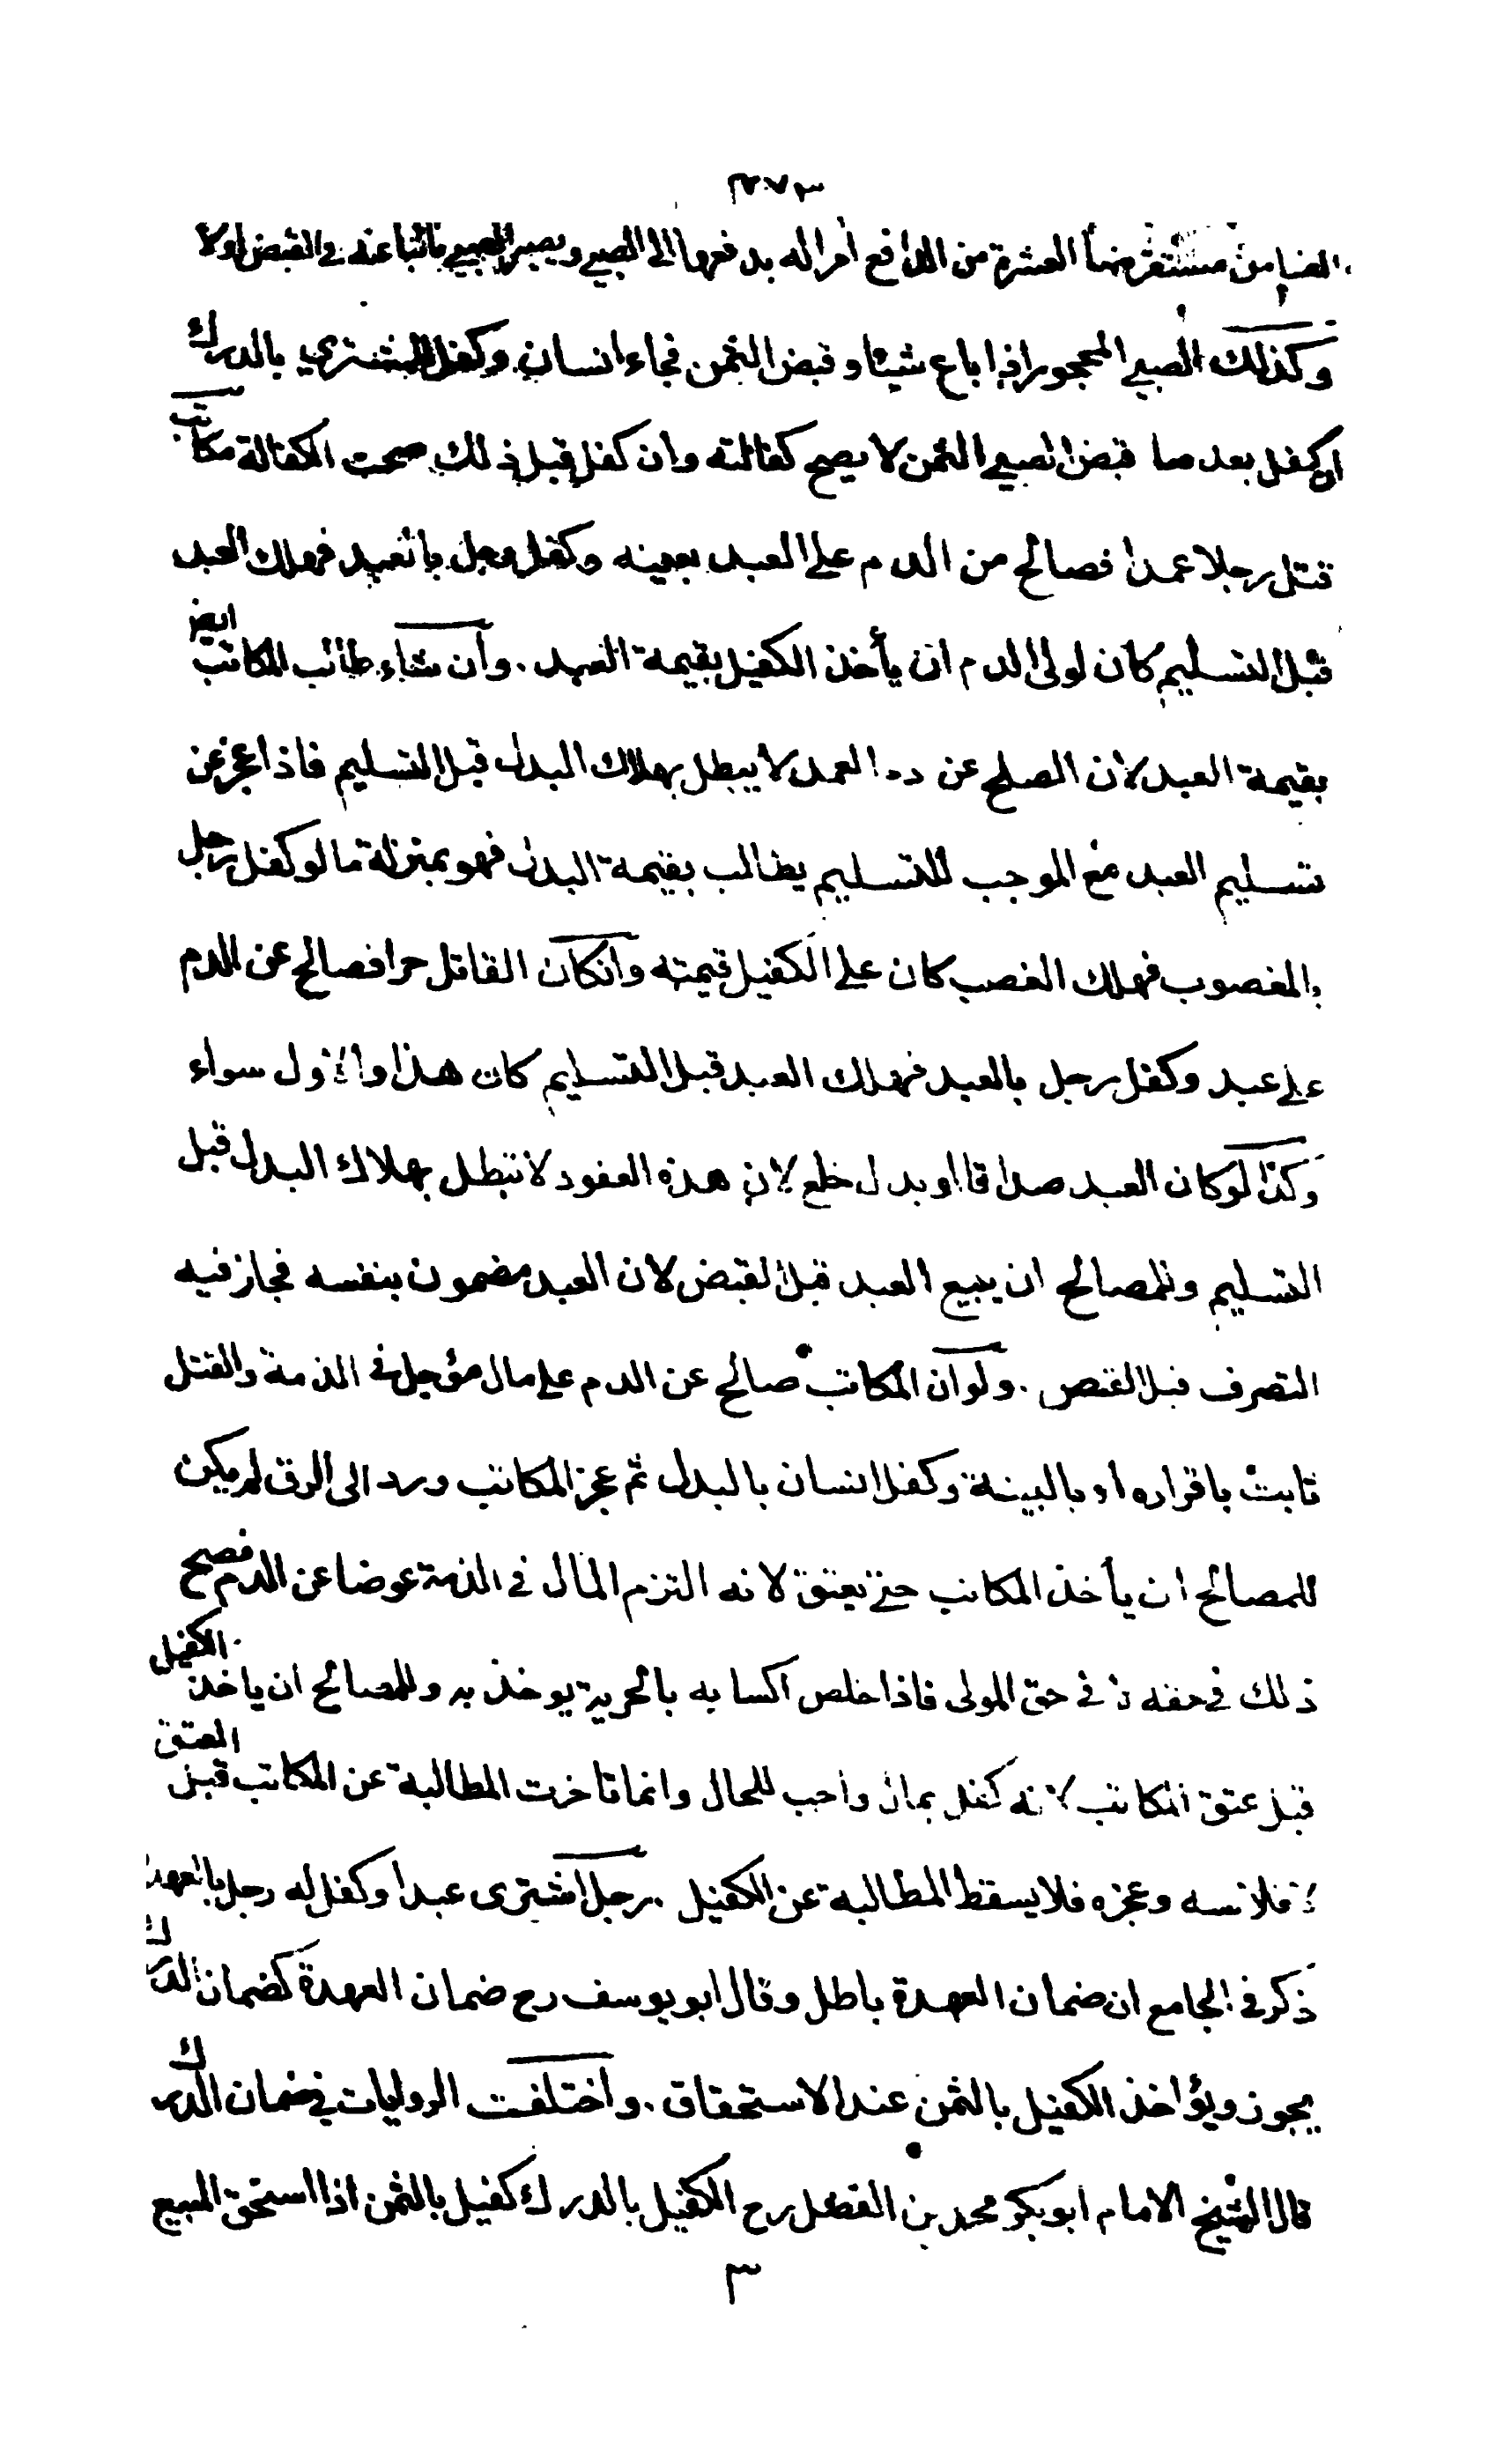 ٢٧٣
الضامن مستقرضا العشرة من الدافع امرا له بدفعها الى الصبي ويصير الصبي نائبا عنه في القبض اولا
وكذلك الصبي المحجور اذا باع شيئا وقبض الثمن فجاء انسان وكفل للمشتري بالدرك
ان كفل بعد ما قبض الصبي الثمن لا يصح كفالته وان كفل قبل ذلك صحت الكفالة مكاتب
قتل رجلا عمدا فصالح من الدم على العبد بعينه وكفل رجل بالعبد فهلك العبد
قبل التسليم كان لولى الدم ان يأخذ الكفيل بقيمة العبد . وان شاء طالب المكاتب ايضا
بقيمة العبد لان الصلح عن دم العمد لا يبطل بهلاك البدل قبل التسليم فاذا عجز عن
تسليم العبد مع الموجب للتسليم يطالب بقيمة البدل فهو بمنزلة ما لو كفل رجل
بالمغصوب فهلك الغصب كان على الكفيل قيمته وانكان القاتل حرا فصالح عن الدم
على عبد وكفل رجل بالعبد فهلك العبد قبل التسليم كان هذا والاول سواء
وكذا لو كان العبد صداقا او بدل خلع لان هذه العقود لا تبطل بهلاك البدل قبل
التسليم وللمصالح ان يبيع العبد قبل القبض لان العبد مضمون بنفسه فجاز فيه
التصرف قبل القبض . ولو ان المكاتب صالح عن الدم على مال مؤجل في الذمة والقتل
ثابت باقراره او بالبينة وكفل انسان بالبدل ثم عجز المكاتب ورد الى الرق لم يكن
للمصالح ان يأخذ المكاتب حتى يعتق لانه التزم المال في الذمة عوضا عن الدم فصح
ذلك في حقه لا في حق المولى فاذا خلص اكسابه بالحرية يوخذ به وللمصالح ان ياخذ الكفيل
قبل عتق المكاتب لانه كفل بمال واجب للحال وانما تاخرت المطالبة عن المكاتب قبل العتق
لافلاسه وعجزه فلا يسقط المطالبة عن الكفيل . رجل اشترى عبدا وكفل له رجل بالعهدة
ذكر في الجامع ان ضمان العهدة باطل وقال ابو يوسف رح ضمان العهدة كضمان الدرك
يجوز ويؤاخذ الكفيل بالثمن عند الاستحقاق . واختلفت الروايات في ضمان الدرك
قال الشيخ الامام ابو بكر محمد بن الفضل رح الكفيل بالدرك كفيل بالثمن اذا استحق المبيع
٣